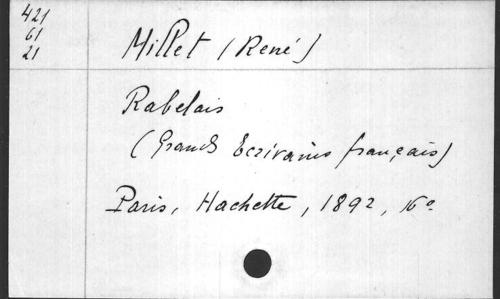 421
61
21
Millet (René)
Rabelais
(Grands Ecrivains français)
Paris, Hachette, 1892, 16o